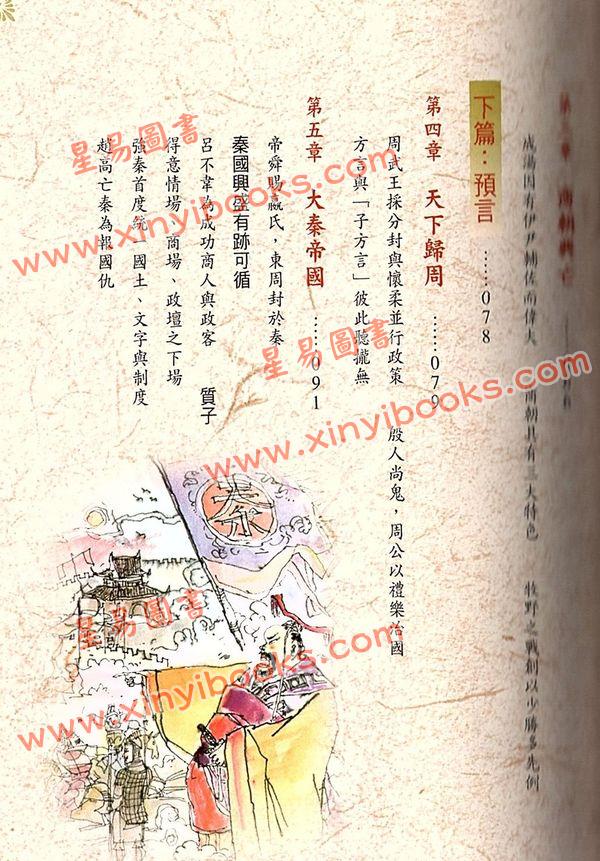 成湯因有伊尹輔佐而偉大 商朝具有三大特色 牧野之戰創以少勝多先例
下篇：預言 ……078
第四章 天下歸周 ……079
周武王採分封與懷柔並行政策 殷人尚鬼，周公以禮樂治國
方言與「子方言」彼此聽攏無
第五章 大秦帝國 ……091
帝舜賜嬴氏，東周封於秦
秦國興盛有跡可循
呂不韋為成功商人與政客 質子
得意情場、商場、政壇之下場
強秦首度統一國土、文字與制度
趙高亡秦為報國仇
秦
星易圖書
www.xinyibooks.com
星易圖書
www.xinyibooks.com
星易圖書
www.xinyibooks.com